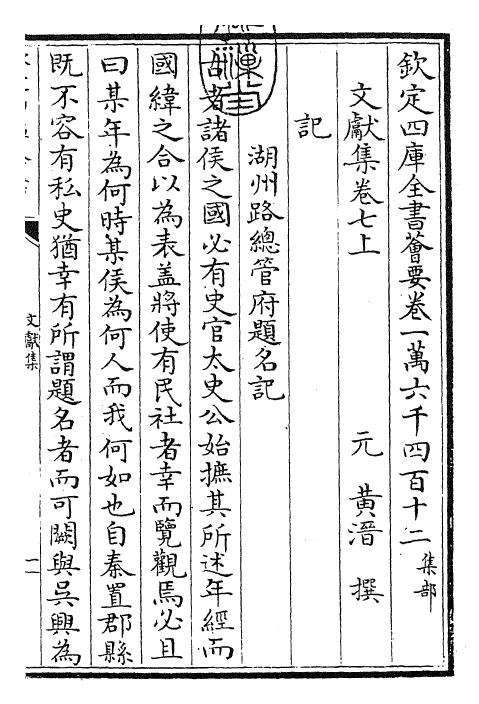 欽定四庫全書薈要卷一萬六千四百十二 集部
文獻集卷七上 元 黃溍 撰
記
湖州路總管府題名記
古者諸侯之國必有史官太史公始摭其所述年經而
國緯之合以為表盖將使有民社者幸而覽觀焉必且
曰某年為何時某侯為何人而我何如也自秦置郡縣
既不容有私史猶幸有所謂題名者而可闕與吳興為
文獻集
一